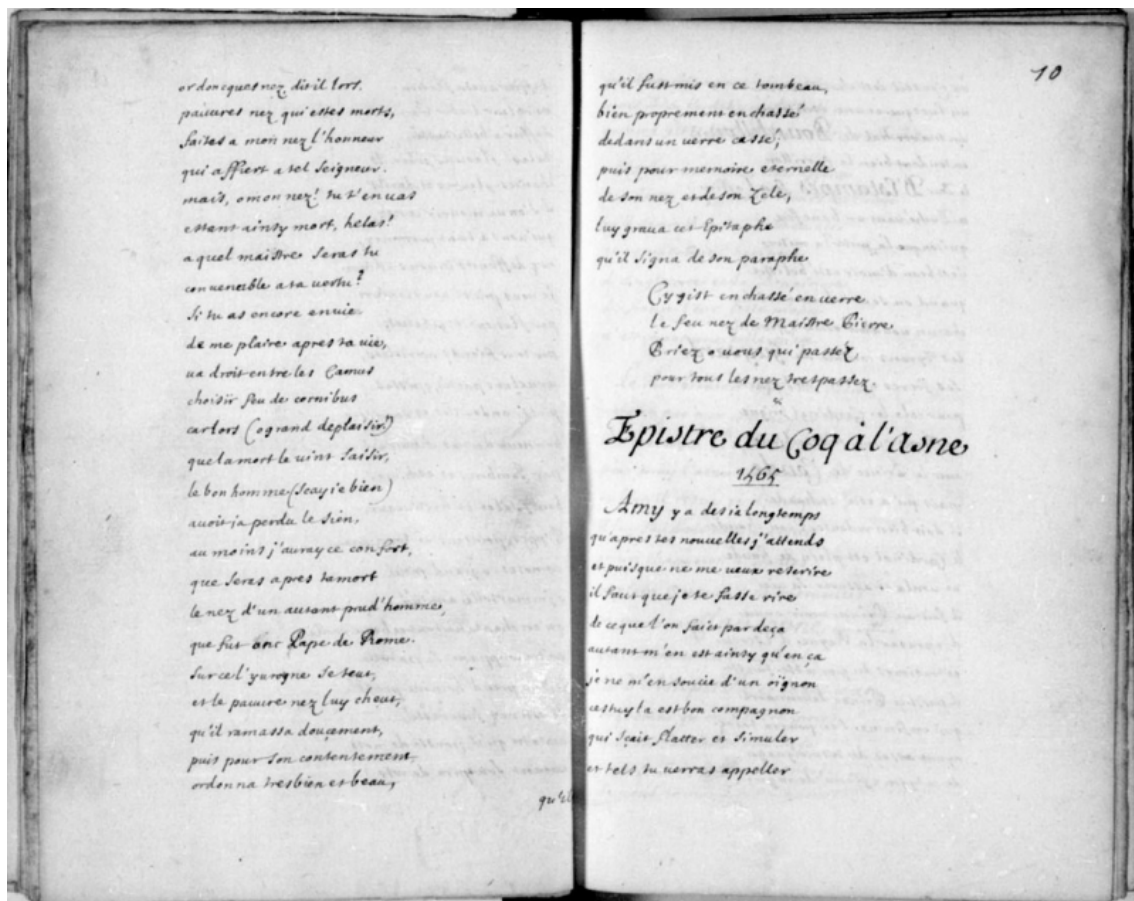 or doncques nez, dit il lors,
pauvres nez qui estes morts,
faites a mon nez l'honneur
qui affiert a tel seigneur.
mais, o mon nez! tu t'en vas
estant ainsy mort, helas!
a quel maistre seras tu
convenable a ta vertu?
si tu as encore envie
de me plaire apres ta vie,
va droit entre les Camus
choisir feu de cornibus
car lors (o grand deplaisir!)
que la mort le vint saisir,
le bon homme (scay ie bien)
avoit ja perdu le sien,
au moins j'auray ce confort,
que seras apres ta mort
le nez d'un autant prud'homme,
que fut onc Pape de Rome.
sur ce l'yurogne se teut,
et le pauvre nez luy cheut,
qu'il ramassa doucement,
puis pour son contentement
ordonna tresbien et beau,
qu'il
10
qu'il fust mis en ce tombeau,
bien proprement enchassé
dedans un verre cassé,
puis pour memoire eternelle
de son nez et de son zele,
luy grava cet Epitaphe
qu'il signa de son paraphe
Cy gist enchassé en verre
le feu nez de Maistre Pierre
Priez o vous qui passez
pour tous les nez trespassez.
Epistre du Coq à l'Asne
1565
Amy y a desia longtemps
qu'apres tes nouvelles j'attends
et puisque ne me veux rescrire
il faut que je te fasse rire
de ce que l'on fait par deça
autant m'en est ainsy qu'en ça
je ne m'en soucie d'un oignon
cestuy la est bon compagnon
qui sçait flatter et simuler
et tels tu verras appeller